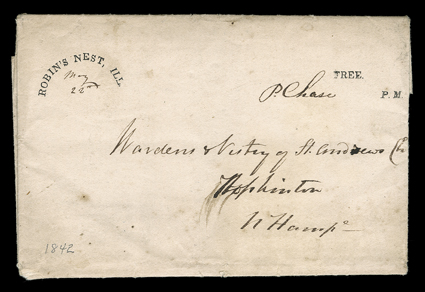 ROBIN'S NEST, ILL
May
22nd
FREE.
P. Chase
P. M
Wardens & Vestry of St. Andrews Ch
Hopkinton
N Hampe
1842